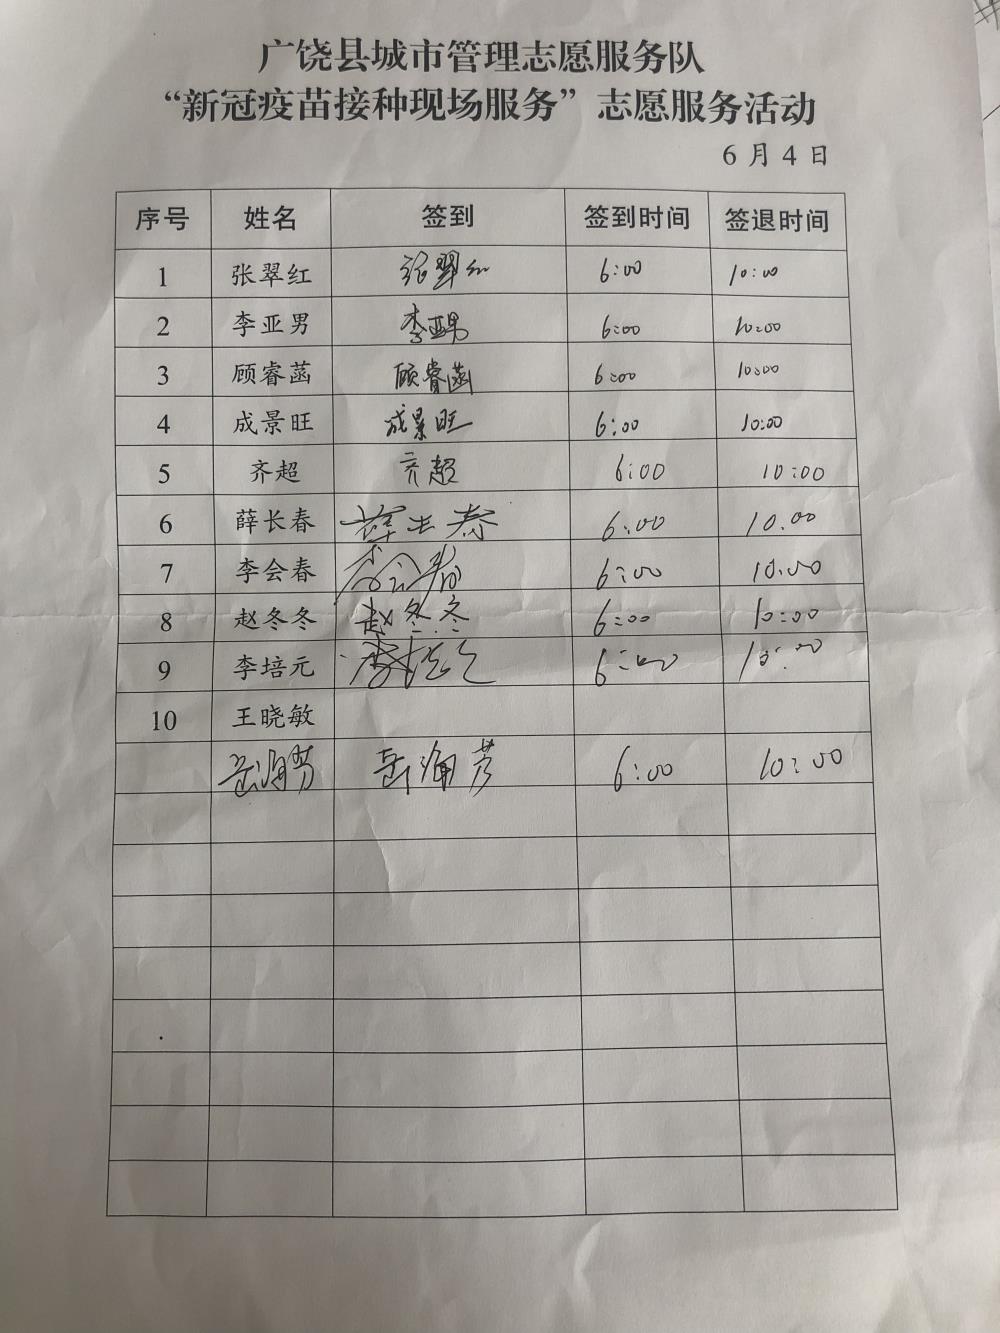 广饶县城市管理志愿服务队
“新冠疫苗接种现场服务”志愿服务活动
6月4日
序号 姓名 签到 签到时间 签退时间
1 张翠红 张翠红 6:00 10:00
2 李亚男 李亚男 6:00 10:00
3 顾睿菡 顾睿菡 6:00 10:00
4 成景旺 成景旺 6:00 10:00
5 齐超 齐超 6:00 10:00
6 薛长春 薛长春 6:00 10:00
7 李会春 李会春 6:00 10:00
8 赵冬冬 赵冬冬 6:00 10:00
9 李培元 李培元 6:00 10:00
10 王晓敏
岳海芳 岳海芳 6:00 10:00